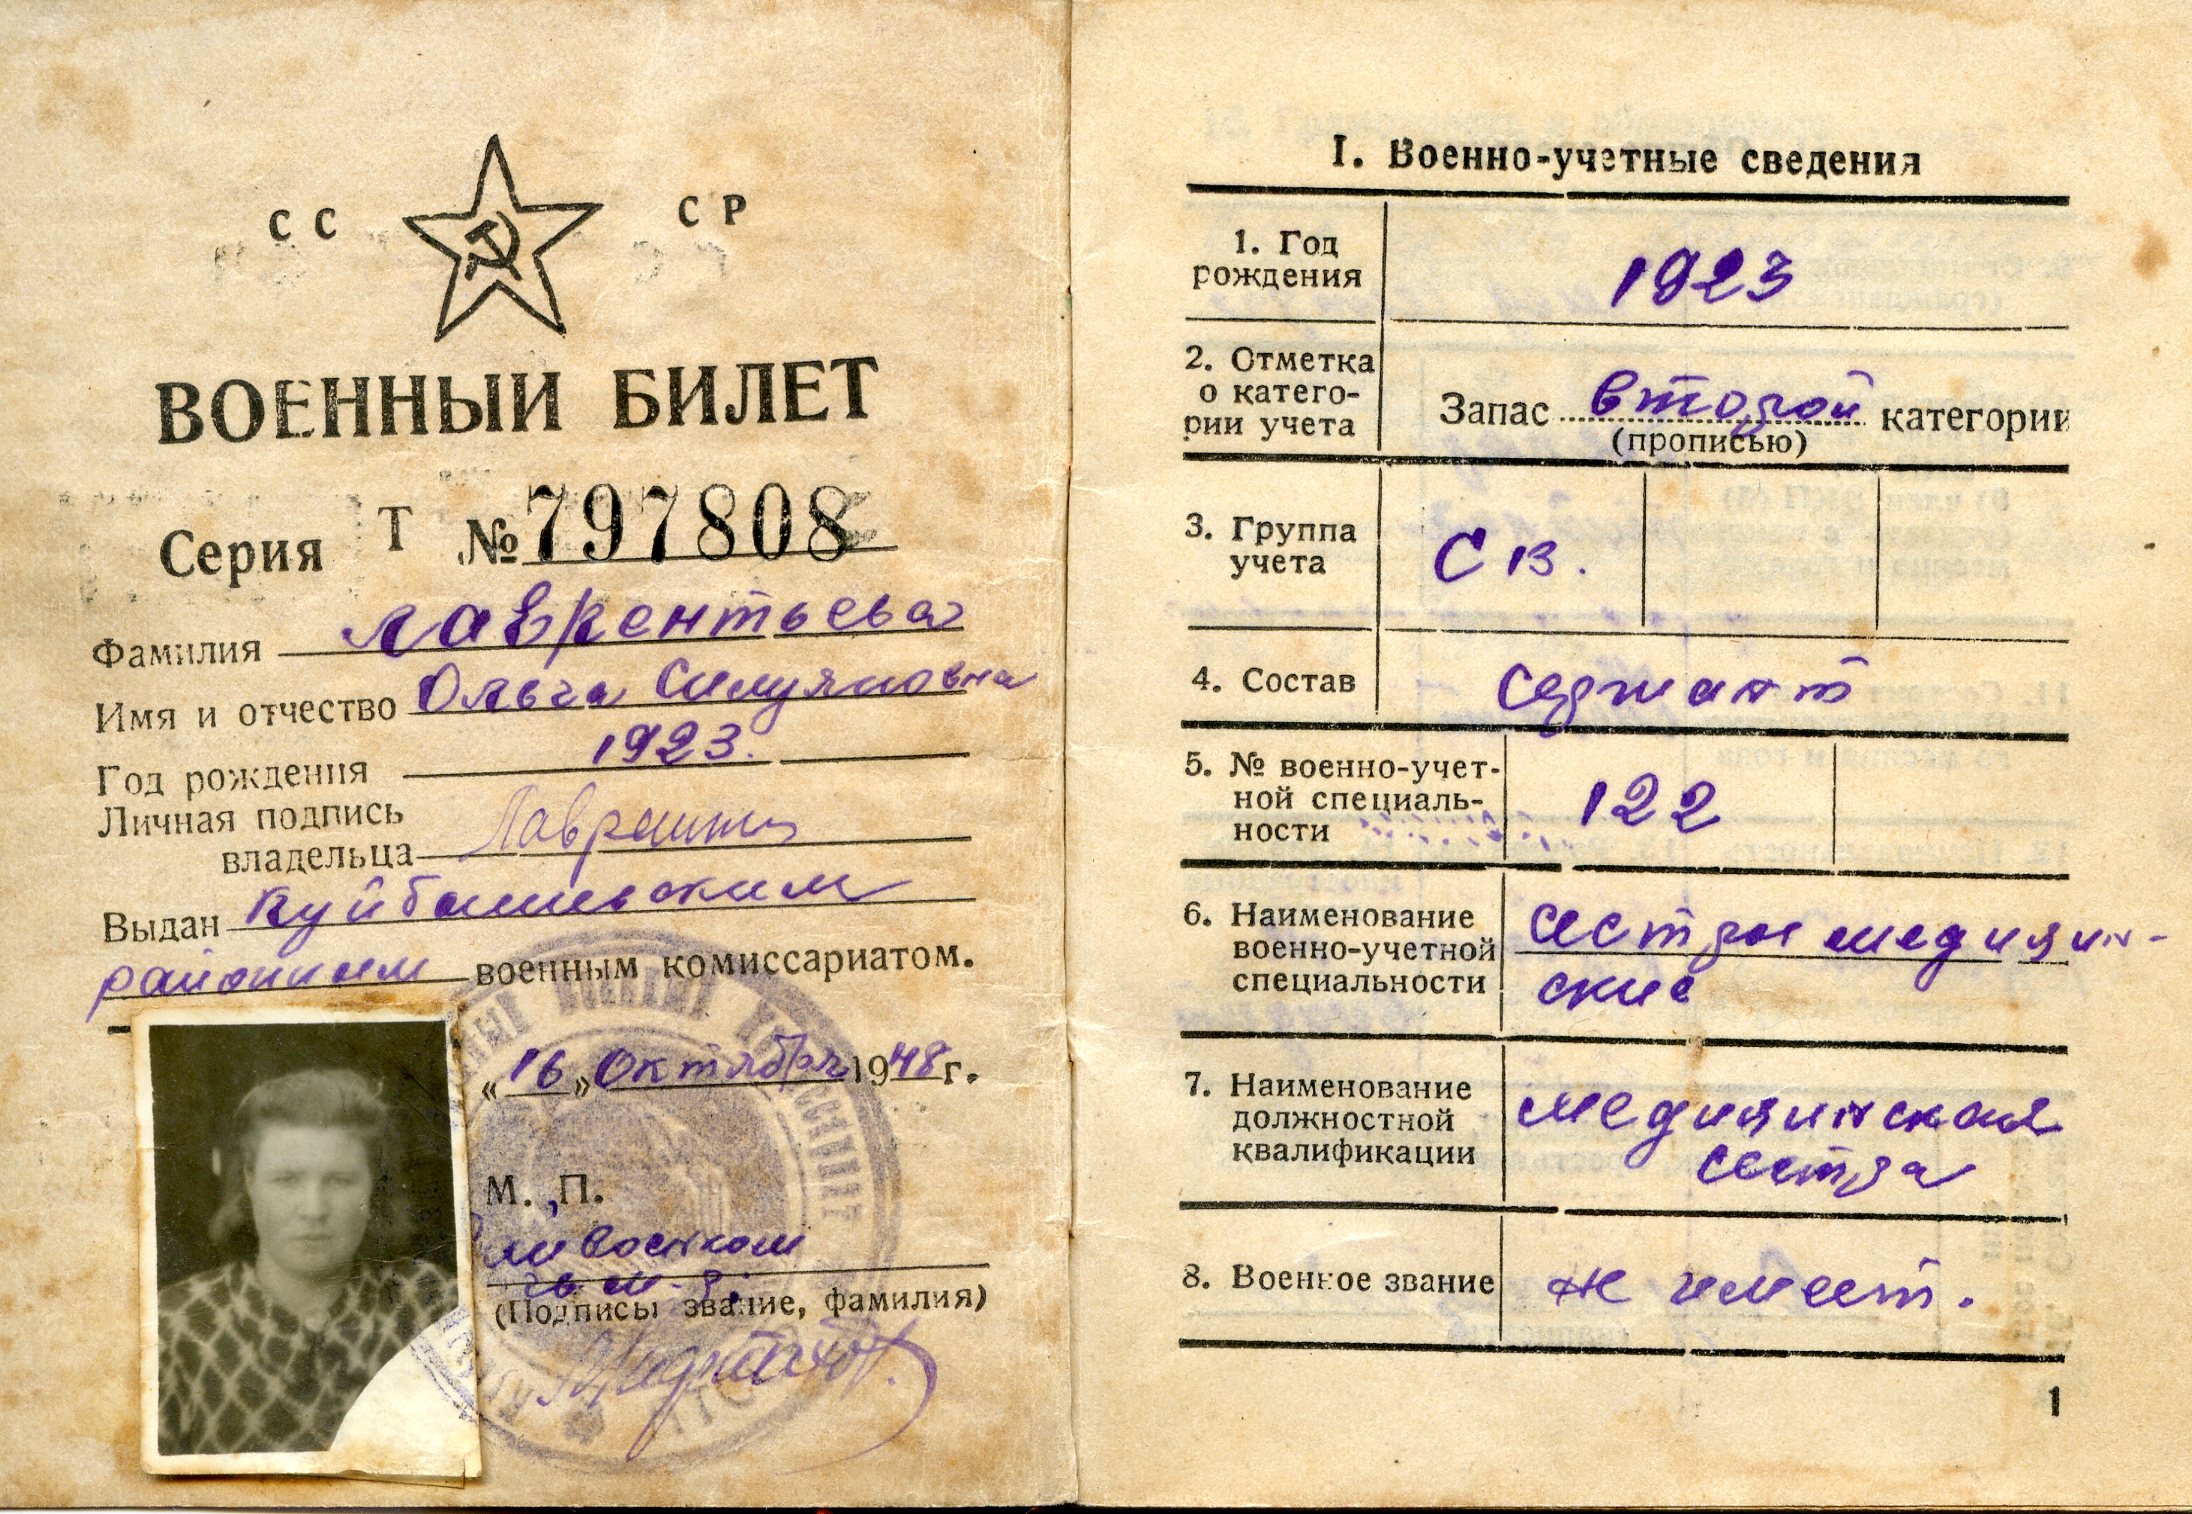 СС СР
ВОЕННЫЙ БИЛЕТ
Серия Т № 797808
Фамилия Лаврентьева
Имя и отчество Ольга Силуяновна
Год рождения 1923.
Личная подпись
владельца
Выдан Куйбышевским
районным военным комиссариатом.
«16» Октября 1948 г.
М. П.
(Подпись, звание, фамилия)
I. Военно-учетные сведения
1. Год
рождения
1923
2. Отметка
о катего-
рии учета
Запас второй категории
(прописью)
3. Группа
учета
СВ.
4. Состав
сержант
5. № военно-учет-
ной специаль-
ности
122
6. Наименование
военно-учетной
специальности
сестры медицин-
ские
7. Наименование
должностной
квалификации
медицинская
сестра
8. Военное звание
не имеет.
1